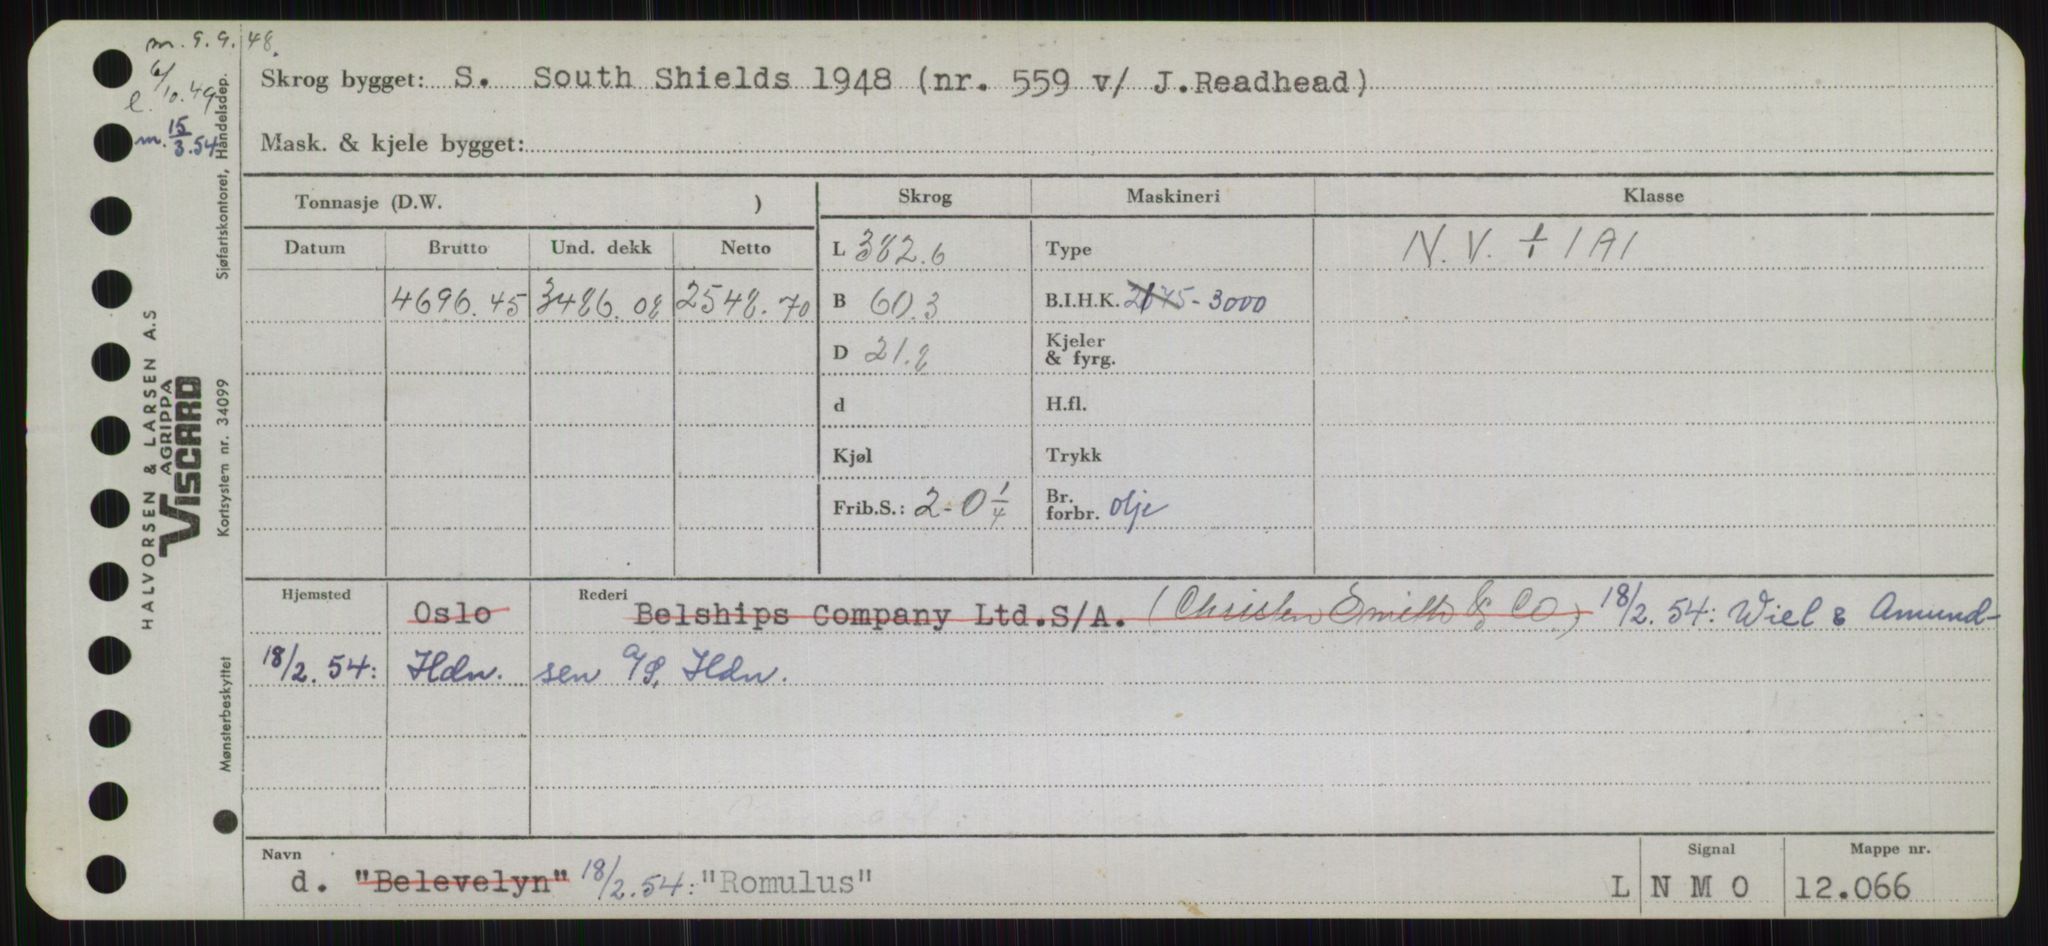 m. 9.9.48.
6/10.49
l.
m. 15/3.54
Sjøfartskontoret, Handelsdep.
HALVORSEN & LARSEN A.S
AGRIPPA
VISCARD
Kortsystem nr. 34099
Mønsterbeskyttet
Skrog bygget: S. South Shields 1948 (nr. 559 v/ J.Readhead)
Mask. & kjele bygget:
Tonnasje (D.W. )
Skrog
Maskineri
Klasse
Datum Brutto Und. dekk Netto
L 382.6
Type
N.V. + 1A1
4696.45 3486.08 2548.70
B 60.3
B.I.H.K. 2175 - 3000
D 21.8
Kjeler
& fyrg.
d
H.fl.
Kjøl
Trykk
Frib.S.: 2-0 1/4
Br.
forbr. olje
Hjemsted
Oslo
Rederi
Belships Company Ltd.S/A. (Christen Smith & Co) 18/2.54: Wiel & Amund-
18/2.54: Hdn. sen A/S, Hdn.
Navn
d. "Belevelyn" 18/2.54: "Romulus"
Signal
L N M O
Mappe nr.
12.066